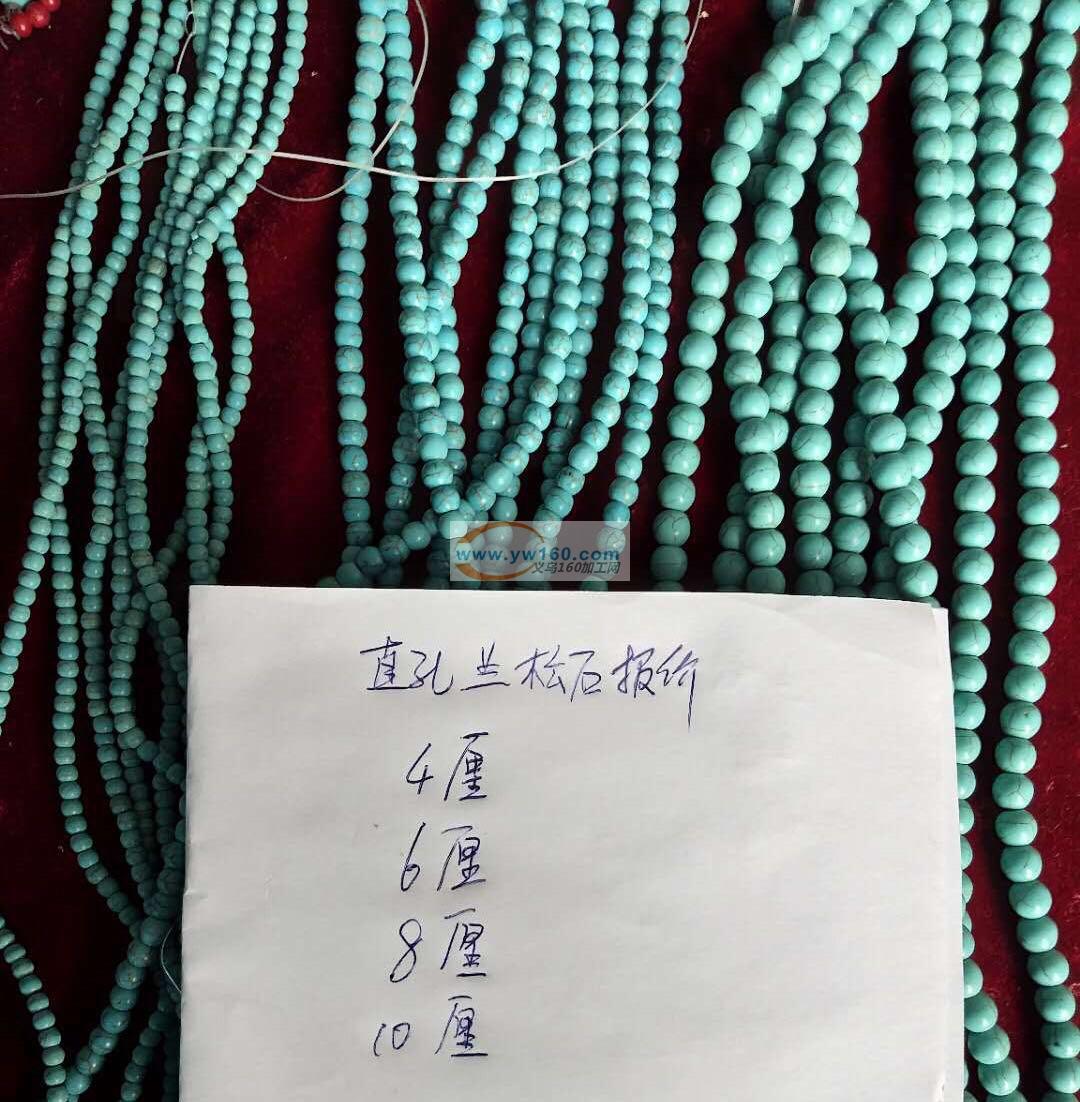 www.yw160.com
义乌160加工网
直孔兰松石报价
4厘
6厘
8厘
10厘